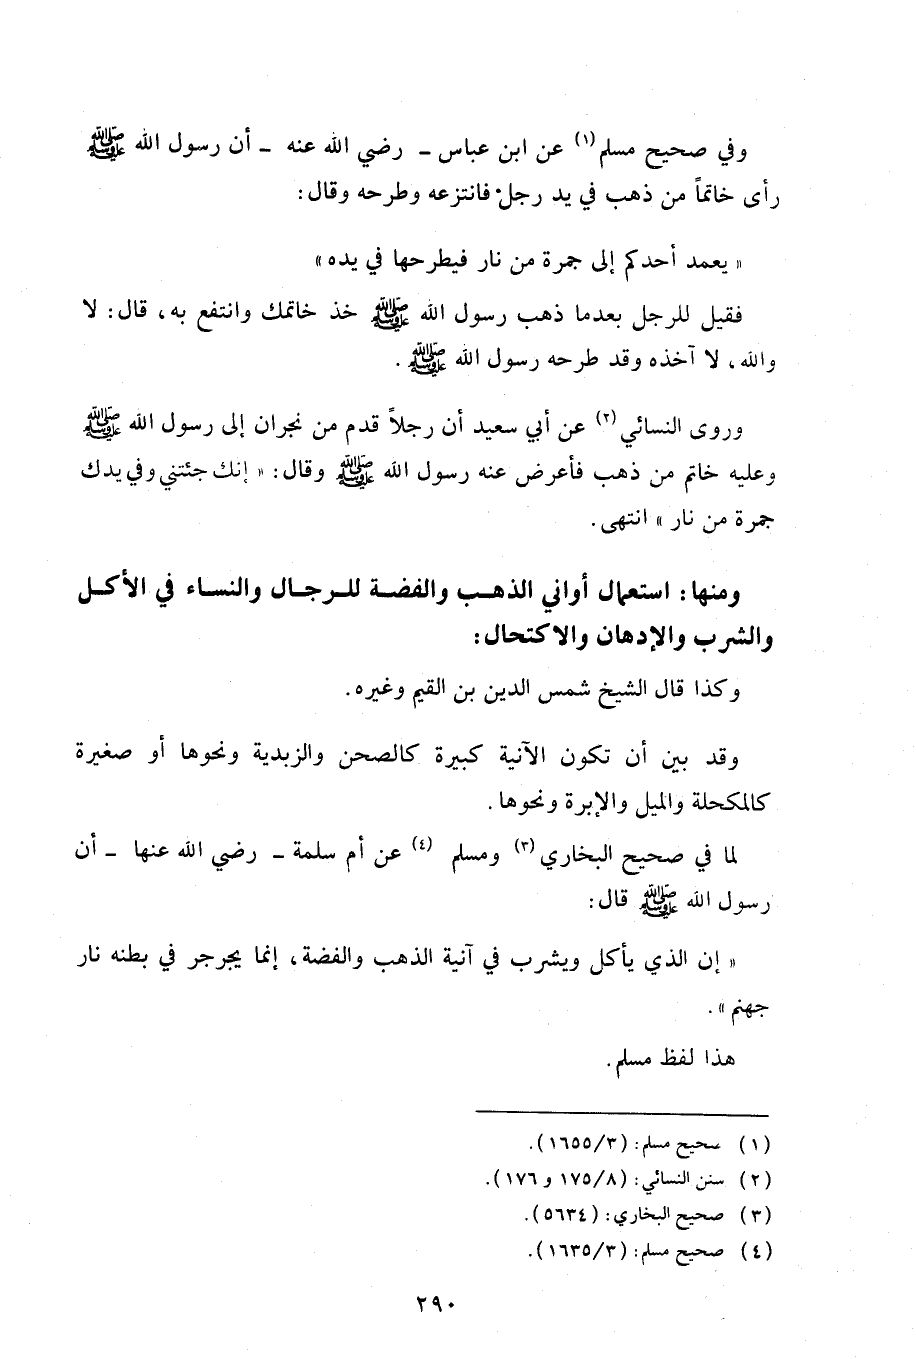 وفي صحيح مسلم(١) عن ابن عباس ـ رضي الله عنه ـ أن رسول الله ﷺ
رأى خاتماً من ذهب في يد رجل فانتزعه وطرحه وقال:
« يعمد أحدكم إلى جمرة من نار فيطرحها في يده»
فقيل للرجل بعدما ذهب رسول الله ﷺ خذ خاتمك وانتفع به، قال: لا
والله، لا آخذه وقد طرحه رسول الله ﷺ .
وروى النسائي(٢) عن أبي سعيد أن رجلاً قدم من نجران إلى رسول الله ﷺ
وعليه خاتم من ذهب فأعرض عنه رسول الله ﷺ وقال: « إنك جئتني وفي يدك
جمرة من نار » انتهى.
ومنها: استعمال أواني الذهب والفضة للرجال والنساء في الأكل
والشرب والإدهان والاكتحال:
وكذا قال الشيخ شمس الدين بن القيم وغيره.
وقد بين أن تكون الآنية كبيرة كالصحن والزبدية ونحوها أو صغيرة
كالمكحلة والميل والإبرة ونحوها.
لما في صحيح البخاري(٣) ومسلم (٤) عن أم سلمة ـ رضي الله عنها ـ أن
رسول الله ﷺ قال:
« إن الذي يأكل ويشرب في آنية الذهب والفضة، إنما يجرجر في بطنه نار
جهنم ».
هذا لفظ مسلم.
(١) صحيح مسلم: (١٦٥٥/٣).
(٢) سنن النسائي: (١٧٥/٨ و ١٧٦).
(٣) صحيح البخاري: (٥٦٣٤).
(٤) صحيح مسلم: (١٦٣٥/٣).
٢٩٠